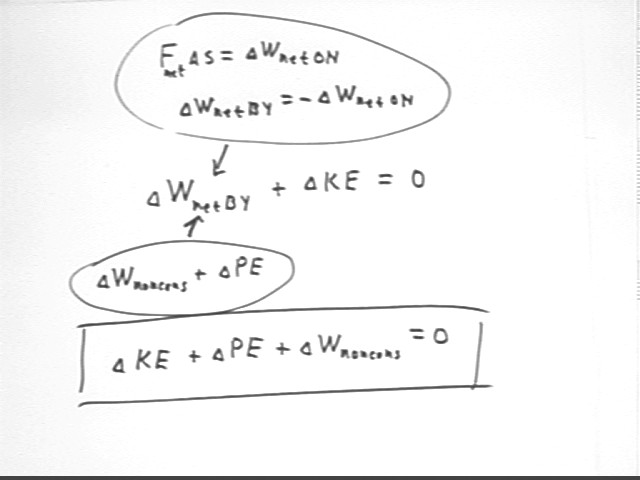 F_net ΔS = ΔW_net ON
ΔW_net BY = - ΔW_net ON
ΔW_net BY + ΔKE = 0
ΔW_noncons + ΔPE
ΔKE + ΔPE + ΔW_noncons = 0